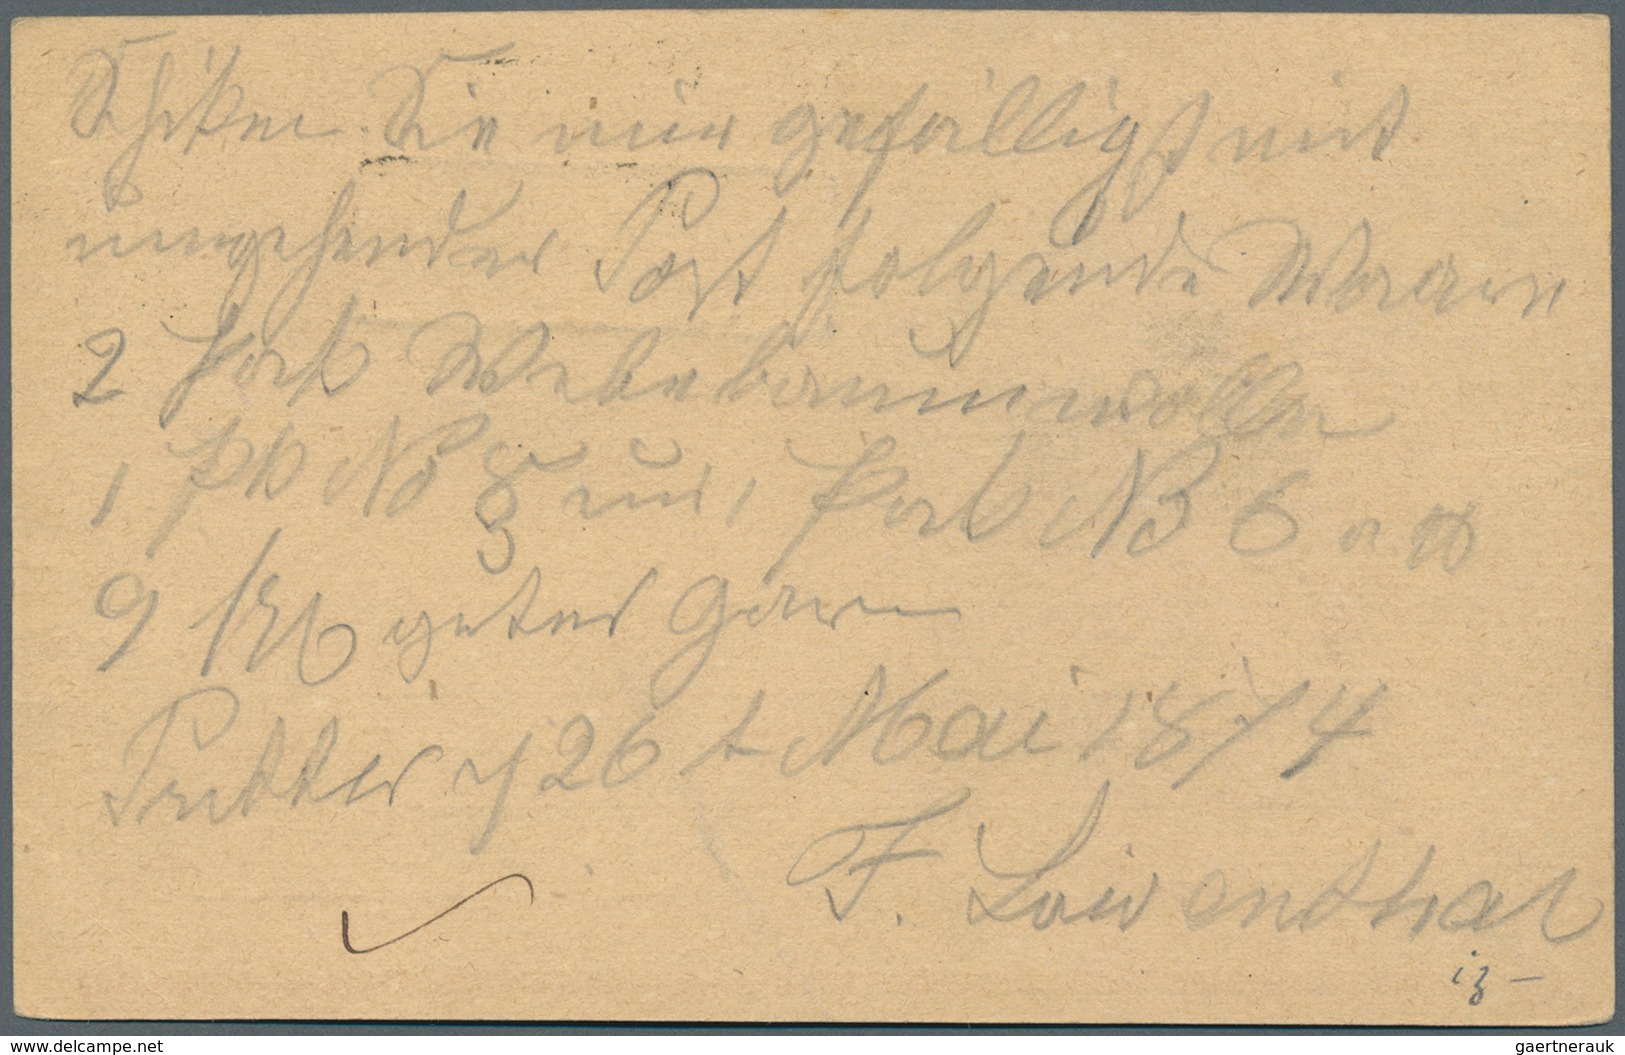 Schiken Sie mir gefälligst mit
umgehender Post folgende Waarn
2 Pack Webebaumwolle
1 Pk No 8 und 1 Pack No 6
9 guter Garn
26 t Mai 1874
F. Loiventhal
www.delcampe.net
gaertnerauk